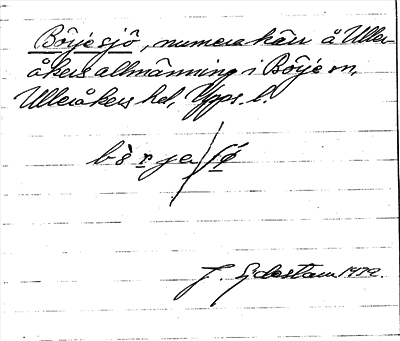 Börje sjö, numera kärr å Uller-
åkers allmänning i Börje sn,
Ulleråkers hd, Upps. l.
bö̀rja/sǿ